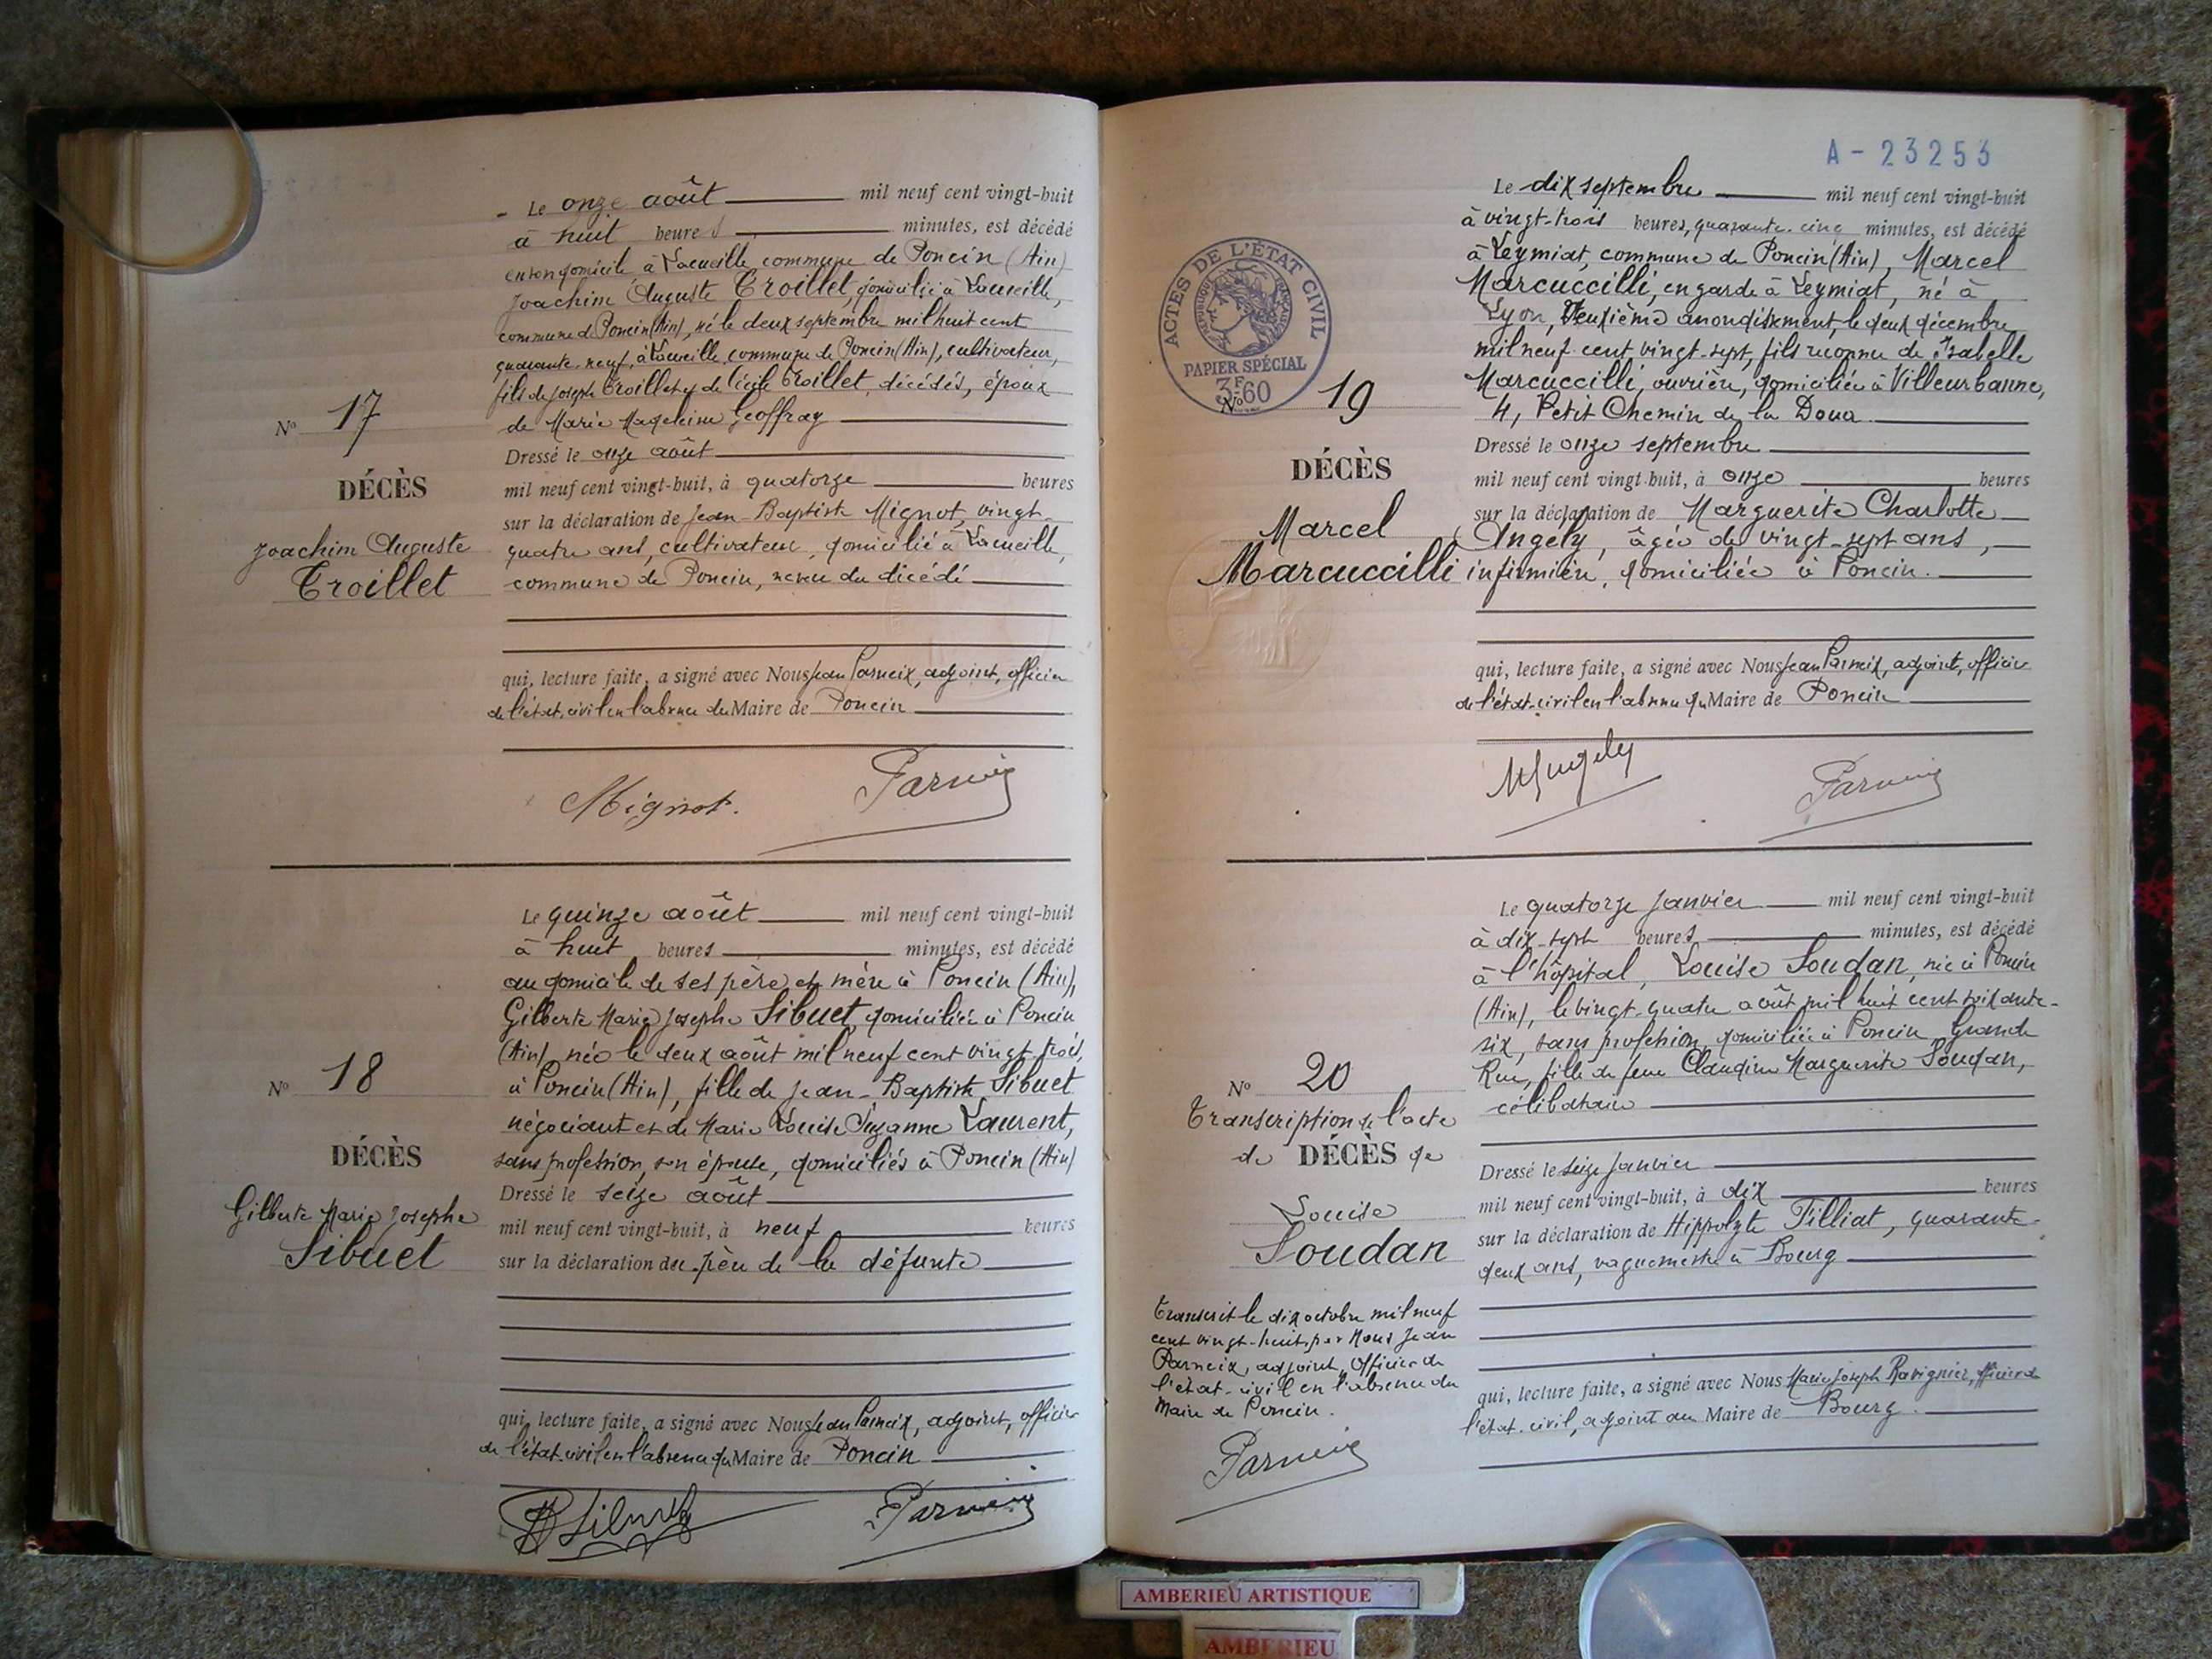 Le onze août mil neuf cent vingt-huit
à huit heures minutes, est décédé
en son domicile à Lacueille commune de Poncin (Ain)
Joachim Auguste Troillet, domicilié à Lacueille,
commune de Poncin (Ain), né le deux septembre mil huit cent
quarante-neuf, à Lacueille commune de Poncin (Ain), cultivateur,
fils de Joseph Troillet et de Cécile Troillet, décédés, époux
de Marie Madeleine Geoffray
Nº 17
Dressé le onze août
DÉCÈS
mil neuf cent vingt-huit, à quatorze heures
sur la déclaration de Jean-Baptiste Mignot, vingt-
Joachim Auguste
quatre ans, cultivateur, domicilié à Lacueille,
Troillet
commune de Poncin, neveu du décédé
qui, lecture faite, a signé avec Nous Jean Parneix, adjoint, officier
de l'état-civil en l'absence du Maire de Poncin
Mignot. Parneix
Le quinze août mil neuf cent vingt-huit
à huit heures minutes, est décédé
au domicile de ses père et mère à Poncin (Ain),
Gilberte Marie Josephe Sibuet, domiciliée à Poncin
(Ain), née le deux août mil neuf cent vingt-trois,
Nº 18
à Poncin (Ain), fille de Jean-Baptiste Sibuet
négociant et de Marie Louise Suzanne Laurent,
DÉCÈS
sans profession, son épouse, domiciliés à Poncin (Ain)
Dressé le seize août
Gilberte Marie Josephe
mil neuf cent vingt-huit, à neuf heures
Sibuet
sur la déclaration du père de la défunte
qui, lecture faite, a signé avec Nous Jean Parneix, adjoint, officier
de l'état-civil en l'absence du Maire de Poncin
Sibuet Parneix
A - 23253
Le dix septembre mil neuf cent vingt-huit
à vingt-trois heures, quarante-cinq minutes, est décédé
à Leymiat, commune de Poncin (Ain), Marcel
Marcuccilli, en garde à Leymiat, né à
Lyon, Deuxième arrondissement, le deux décembre
mil neuf cent vingt-sept, fils reconnu de Isabelle
Marcuccilli, ouvrière, domiciliée à Villeurbanne,
4, Petit Chemin de la Doua
ACTES DE L'ÉTAT CIVIL
RÉPUBLIQUE FRANÇAISE
PAPIER SPÉCIAL
3F60
Nº 19
Dressé le onze septembre
DÉCÈS
mil neuf cent vingt-huit, à onze heures
sur la déclaration de Marguerite Charlotte
Marcel
Angely, âgée de vingt-sept ans,
Marcuccilli
infirmière, domiciliée à Poncin.
qui, lecture faite, a signé avec Nous Jean Parneix, adjoint, officier
de l'état-civil en l'absence du Maire de Poncin
MAngely Parneix
Le quatorze janvier mil neuf cent vingt-huit
à dix-sept heures minutes, est décédé
à l'hôpital, Louise Soudan, née à Poncin
(Ain), le vingt-quatre août mil huit cent soixante-
six, sans profession, domiciliée à Poncin, Grande
Rue, fille de feue Claudine Marguerite Soudan,
célibataire
Nº 20
Transcription de l'acte
de DÉCÈS de
Louise
Soudan
Dressé le seize janvier
mil neuf cent vingt-huit, à dix heures
sur la déclaration de Hippolyte Tilliat, quarante-
deux ans, vaguemestre à Bourg
Transcrit le dix octobre mil neuf
cent vingt-huit, par Nous Jean
Parneix, adjoint, Officier de
l'état-civil en l'absence du
Maire de Poncin.
Parneix
qui, lecture faite, a signé avec Nous Marie Joseph Ravignier, officier de
l'état-civil, adjoint au Maire de Bourg.
AMBERIEU ARTISTIQUE
AMBERIEU